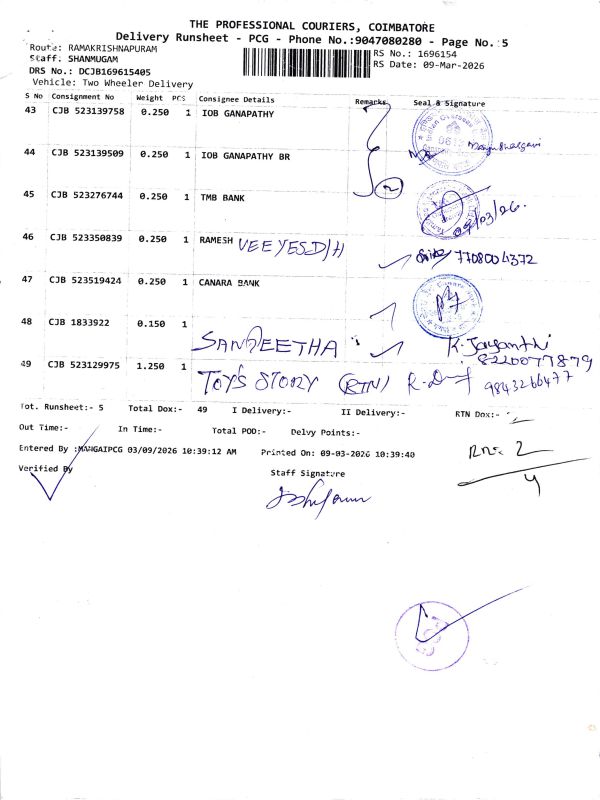 THE PROFESSIONAL COURIERS, COIMBATORE
Delivery Runsheet - PCG - Phone No.:9047080280 - Page No. 5
Route: RAMAKRISHNAPURAM
RS No.: 1696154
Staff: SHANMUGAM
RS Date: 09-Mar-2026
DRS No.: DCJB169615405
Vehicle: Two Wheeler Delivery
S No Consignment No Weight PCS Consignee Details Remarks Seal & Signature
43 CJB 523139758 0.250 1 IOB GANAPATHY
44 CJB 523139509 0.250 1 IOB GANAPATHY BR
2
45 CJB 523276744 0.250 1 TMB BANK
09/03/26.
46 CJB 523350839 0.250 1 RAMESH VEEYES D/H 7708004372
47 CJB 523519424 0.250 1 CANARA BANK
48 CJB 1833922 0.150 1
SANGEETHA K. Jayanthi
8220077879
49 CJB 523129975 1.250 1
TOY'S STORY (RTN) 9843266477
Tot. Runsheet:- 5 Total Dox:- 49 I Delivery:- II Delivery:- RTN Dox:-
Out Time:- In Time:- Total POD:- Delvy Points:-
Entered By :MANGAIPCG 03/09/2026 10:39:12 AM Printed On: 09-03-2026 10:39:40
2
Verified By Staff Signature
4